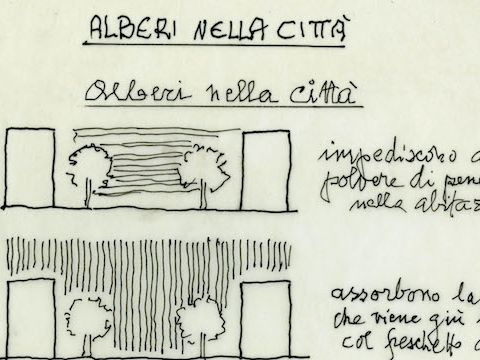 ALBERI NELLA CITTÀ
Alberi nella città
impediscono a
polvere di pene
nella abitaz
assorbono la
che viene giù
col freschetto